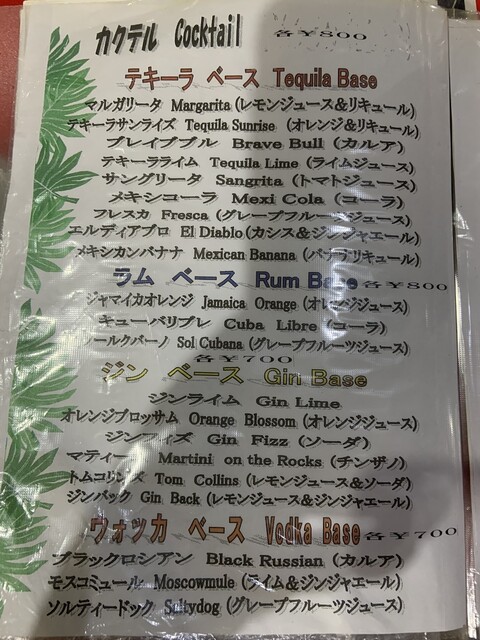 カクテル Cocktail 各￥800
テキーラ ベース Tequila Base
マルガリータ Margarita (レモンジュース&リキュール)
テキーラサンライズ Tequila Sunrise (オレンジ&リキュール)
ブレイブブル Brave Bull (カルア)
テキーラライム Tequila Lime (ライムジュース)
サングリータ Sangrita (トマトジュース)
メキシコーラ Mexi Cola (コーラ)
フレスカ Fresca (グレープフルーツジュース)
エルディアブロ El Diablo (カシス&ジンジャエール)
メキシカンバナナ Mexican Banana (バナナリキュール)
ラム ベース Rum Base 各￥800
ジャマイカオレンジ Jamaica Orange (オレンジジュース)
キューバリブレ Cuba Libre (コーラ)
ソールクバーノ Sol Cubana (グレープフルーツジュース)
各￥700
ジン ベース Gin Base
ジンライム Gin Lime
オレンジブロッサム Orange Blossom (オレンジジュース)
ジンフィズ Gin Fizz (ソーダ)
マティーニ Martini on the Rocks (チンザノ)
トムコリンズ Tom Collins (レモンジュース&ソーダ)
ジンバック Gin Back (レモンジュース&ジンジャエール)
ウォッカ ベース Vodka Base 各￥700
ブラックロシアン Black Russian (カルア)
モスコミュール Moscowmule (ライム&ジンジャエール)
ソルティードック Saltydog (グレープフルーツジュース)